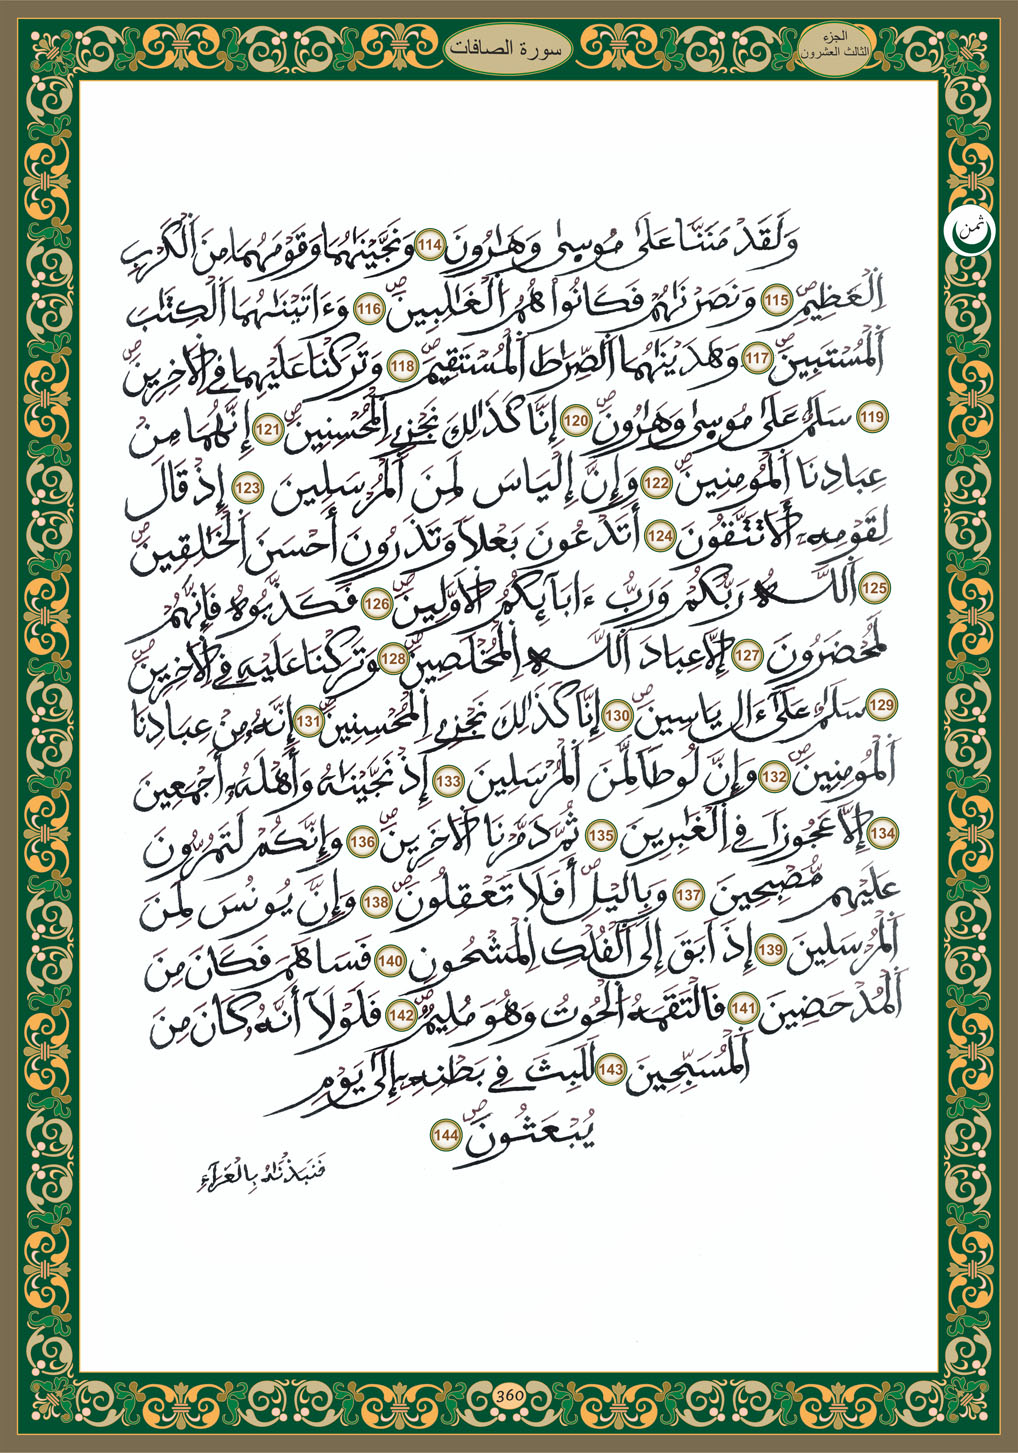 سورة الصافات
الجزء
الثالث العشرون
ثمن
وَلَقَدْ مَنَنَّا عَلَىٰ مُوسِىٰ وَهَٰرُونَ 114 وَنَجَّيْنَٰهُمَا وَقَوْمَهُمَا مِنَ اَ۬لْكَرْبِ
اِ۬لْعَظِيمِۖ 115 وَنَصَرْنَٰهُمْ فَكَانُواْ هُمُ اُ۬لْغَٰلِبِينَۖ 116 وَءَاتَيْنَٰهُمَا اَ۬لْكِتَٰبَ
اَ۬لْمُسْتَبِينَۖ 117 وَهَدَيْنَٰهُمَا اَ۬لصِّرَٰطَ اَ۬لْمُسْتَقِيمَۖ 118 وَتَرَكْنَا عَلَيْهِمَا فِے اِ۬لَاخِرِينَۖ
119 سَلَٰمٌ عَلَىٰ مُوسِىٰ وَهَٰرُونَۖ 120 إِنَّا كَذَٰلِكَ نَجْزِے اِ۬لْمُحْسِنِينَۖ 121 إِنَّهُمَا مِنْ
عِبَادِنَا اَ۬لْمُومِنِينَۖ 122 وَإِنَّ إِلْيَاسَ لَمِنَ اَ۬لْمُرْسَلِينَ 123 إِذْ قَالَ
لِقَوْمِهِۦٓ أَلَا تَتَّقُونَ 124 أَتَدْعُونَ بَعْلاً وَتَذَرُونَ أَحْسَنَ اَ۬لْخَٰلِقِينَۖ
125 اَ۬للَّهُ رَبُّكُمْ وَرَبُّ ءَابَآئِكُمُ اُ۬لَاوَّلِينَۖ 126 فَكَذَّبُوهُ فَإِنَّهُمْ
لَمُحْضَرُونَ 127 إِلَّا عِبَادَ اَ۬للَّهِ اِ۬لْمُخْلَصِينَۖ 128 وَتَرَكْنَا عَلَيْهِ فِے اِ۬لَاخِرِينَۖ
129 سَلَٰمٌ عَلَىٰٓ ءَالِ يَاسِينَۖ 130 إِنَّا كَذَٰلِكَ نَجْزِے اِ۬لْمُحْسِنِينَۖ 131 إِنَّهُۥ مِنْ عِبَادِنَا
اَ۬لْمُومِنِينَۖ 132 وَإِنَّ لُوطاً لَّمِنَ اَ۬لْمُرْسَلِينَ 133 إِذْ نَجَّيْنَٰهُ وَأَهْلَهُۥٓ أَجْمَعِينَ
134 إِلَّا عَجُوزاً فِے اِ۬لْغَٰبِرِينَ 135 ثُمَّ دَمَّرْنَا اَ۬لَاخَرِينَۖ 136 وَإِنَّكُمْ لَتَمُرُّونَ
عَلَيْهِم مُّصْبِحِينَ 137 وَبِالَّيْلِۖ أَفَلَا تَعْقِلُونَۖ 138 وَإِنَّ يُونُسَ لَمِنَ
اَ۬لْمُرْسَلِينَ 139 إِذَ اَبَقَ إِلَى اَ۬لْفُلْكِ اِ۬لْمَشْحُونِ 140 فَسَاهَمَ فَكَانَ مِنَ
اَ۬لْمُدْحَضِينَ 141 فَالْتَقَمَهُ اُ۬لْحُوتُ وَهُوَ مُلِيمٌۖ 142 فَلَوْلَآ أَنَّهُۥ كَانَ مِنَ
اَ۬لْمُسَبِّحِينَ 143 لَلَبِثَ فِے بَطْنِهِۦٓ إِلَىٰ يَوْمِ
يُبْعَثُونَۖ 144
فَنَبَذْنَٰهُ بِالْعَرَآءِ
360